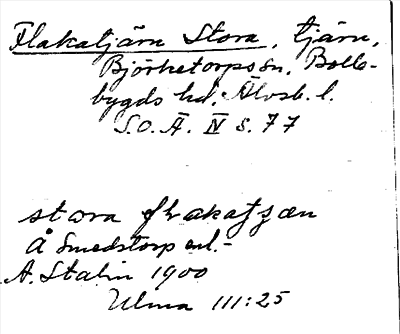 Flakatjärn Stora, tjärn,
Björketorps sn, Bolle-
bygds hd, Älvsb. l.
S.O.Ä. IV s. 77
stora flakatjæn
Å Smedstorp enl.-
A. Stalin 1900
Ulma 111:25